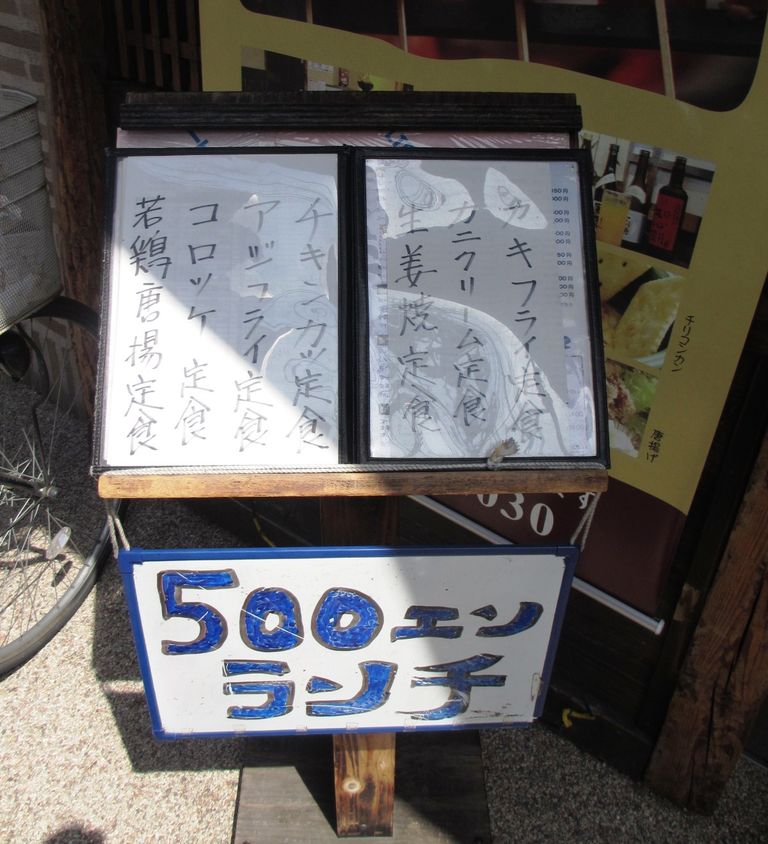 カキフライ定食
カニクリーム定食
生姜焼定食
チキンカツ定食
アジフライ定食
コロッケ定食
若鶏唐揚定食
500エン
ランチ
チリコンカン
唐揚げ
030